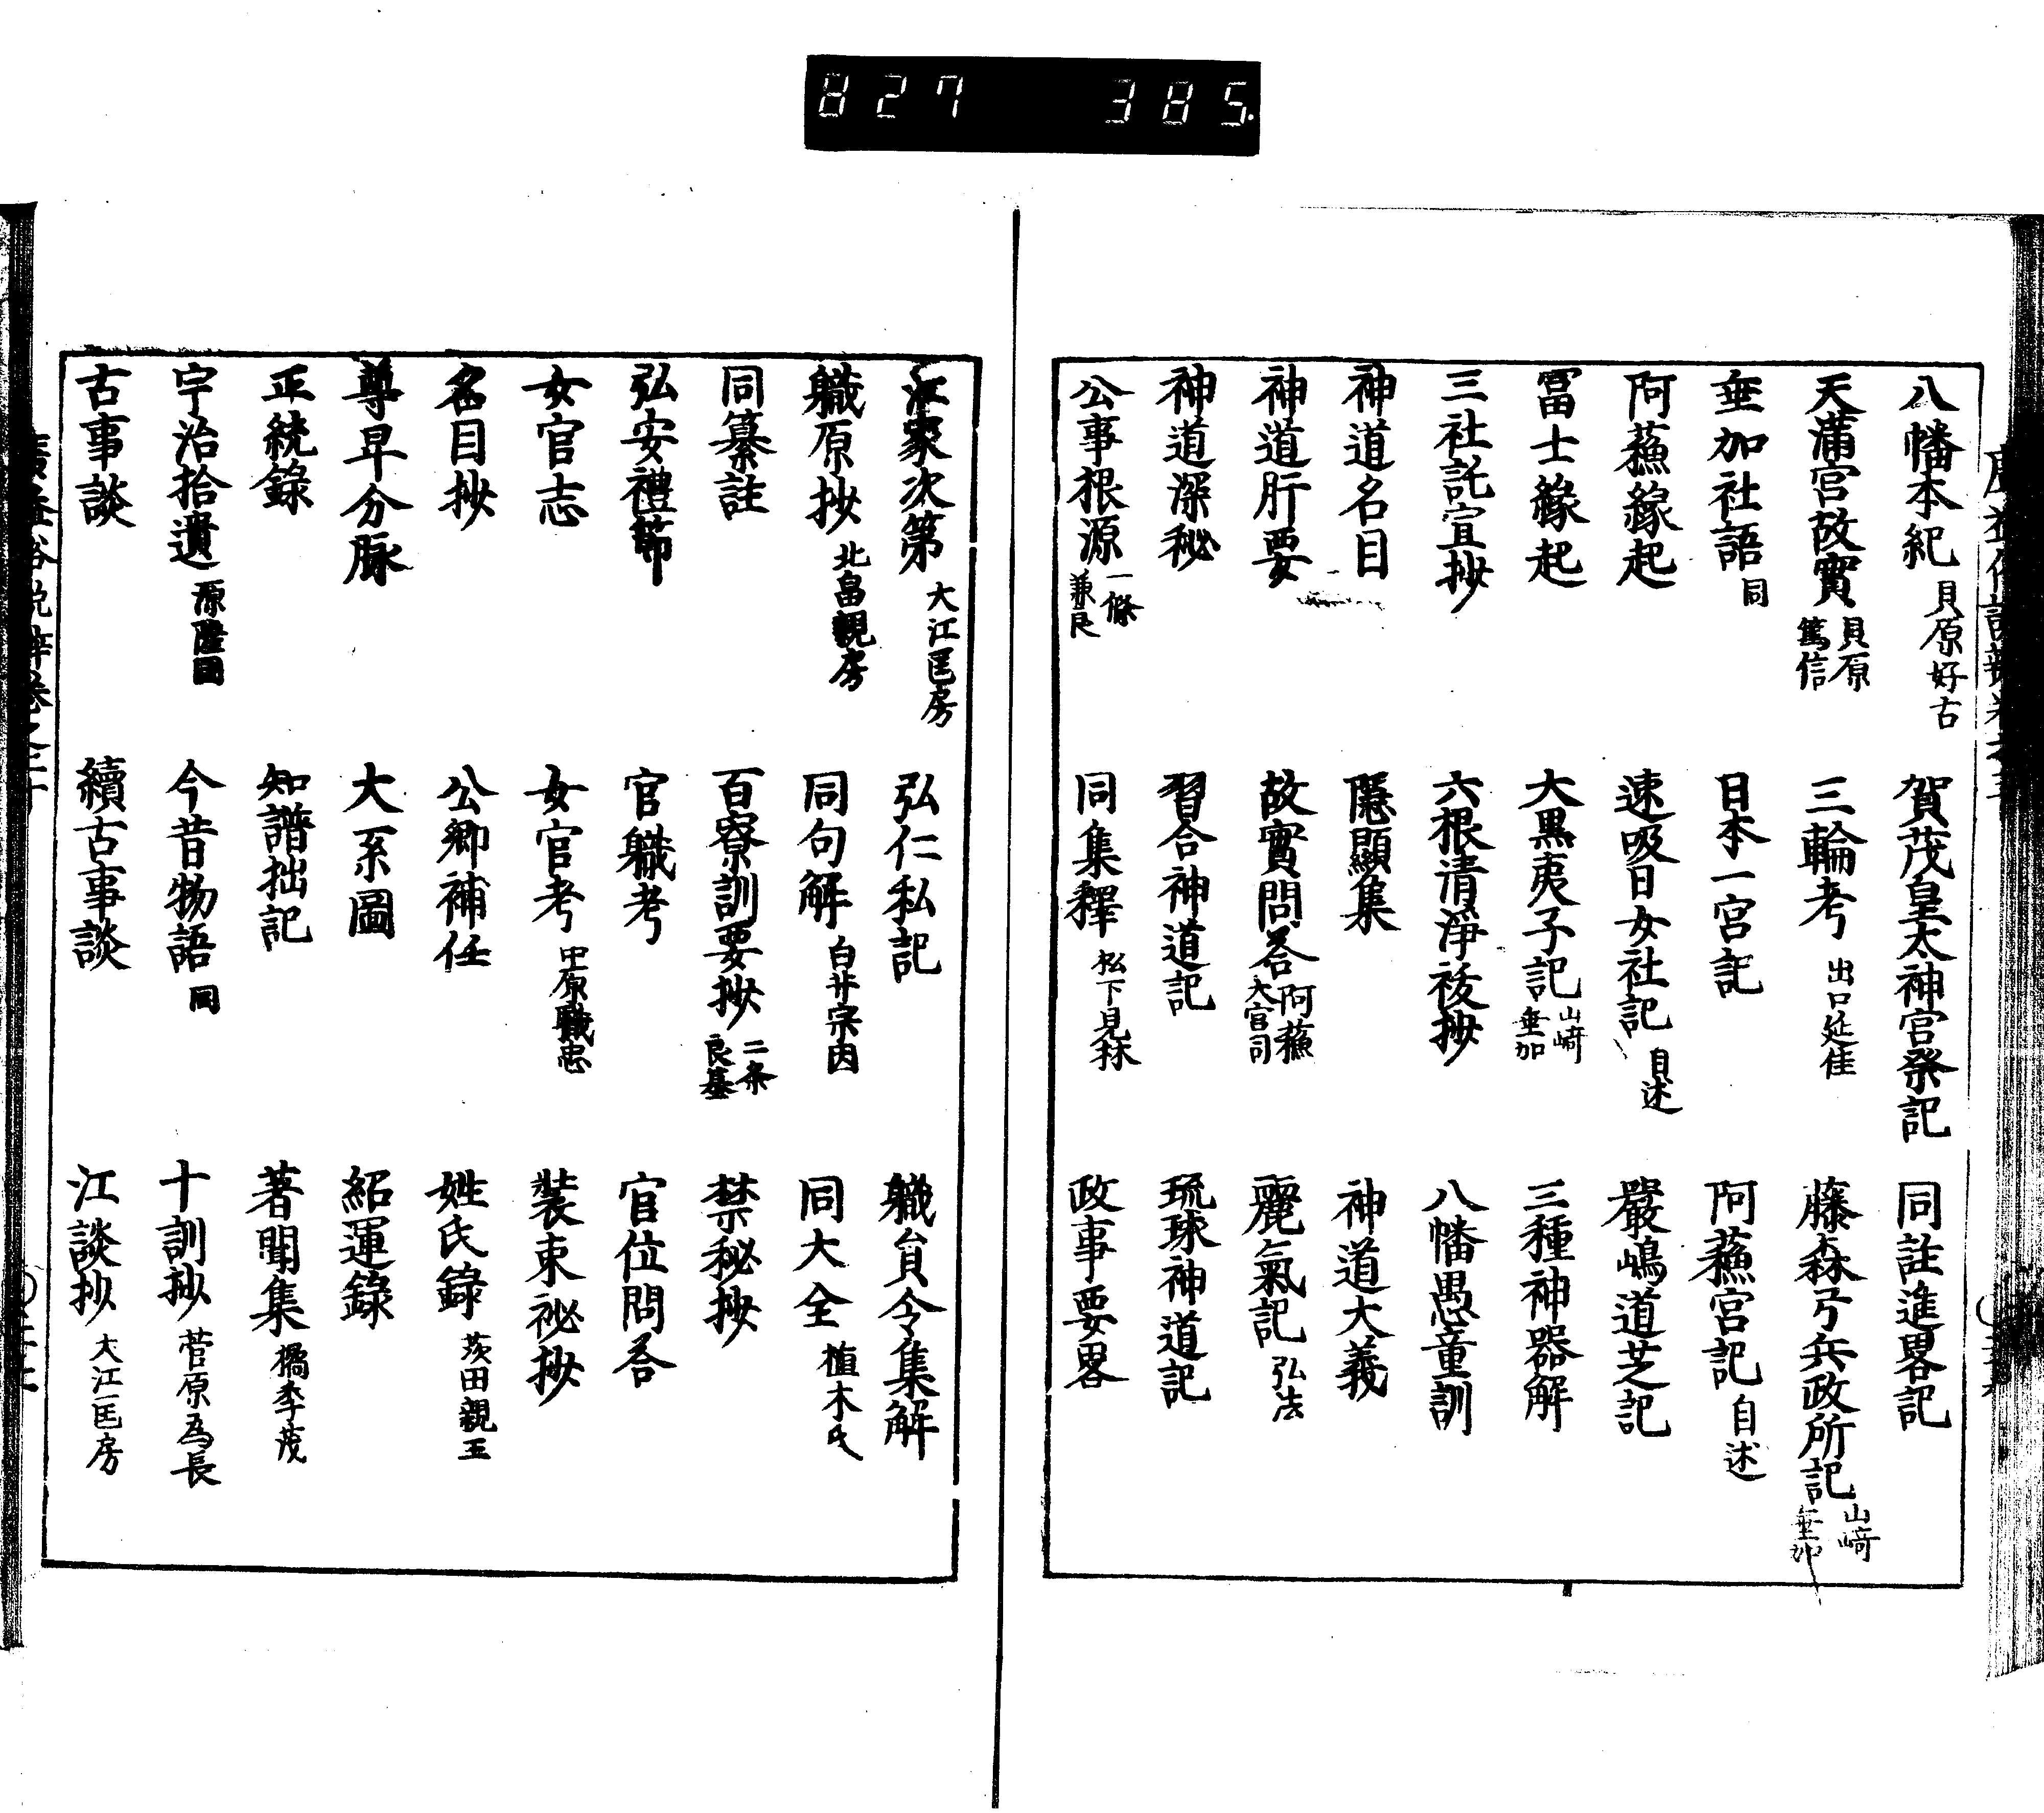 827 385.
八幡本紀 貝原好古 賀茂皇太神宮祭記 同註進畧記
天滿宮故實 貝原篤信 三輪考 出口延佳 藤森弓兵政所記 山﨑垂加
垂加社語 同 日本一宮記 阿蘓宮記 自述
阿蘓緣起 速吸日女社記 自述 嚴嶋道芝記
冨士緣起 大黒夷子記 山﨑垂加 三種神器解
三社託宣抄 六根清淨祓抄 八幡愚童訓
神道名目 隱顯集 神道大義
神道肝要 故實問答 阿蘓大宮司 麗氣記 弘法
神道深秘 習合神道記 琉球神道記
公事根源 一條兼良 同集釋 松下見林 政事要畧
江家次第 大江匡房 弘仁私記 職員令集解
職原抄 北畠親房 同句解 白井宗因 同大全 植木氏
同纂註 百寮訓要抄 二条良基 禁秘抄
弘安禮節 官職考 官位問答
女官志 女官考 中原職忠 裝束祕抄
名目抄 公卿補任 姓氏錄 茨田親王
尊卑分脉 大系圖 紹運錄
正統錄 知譜拙記 著聞集 橘季茂
宇治拾遺 源隆國 今昔物語 同 十訓抄 菅原為長
古事談 續古事談 江談抄 大江匡房